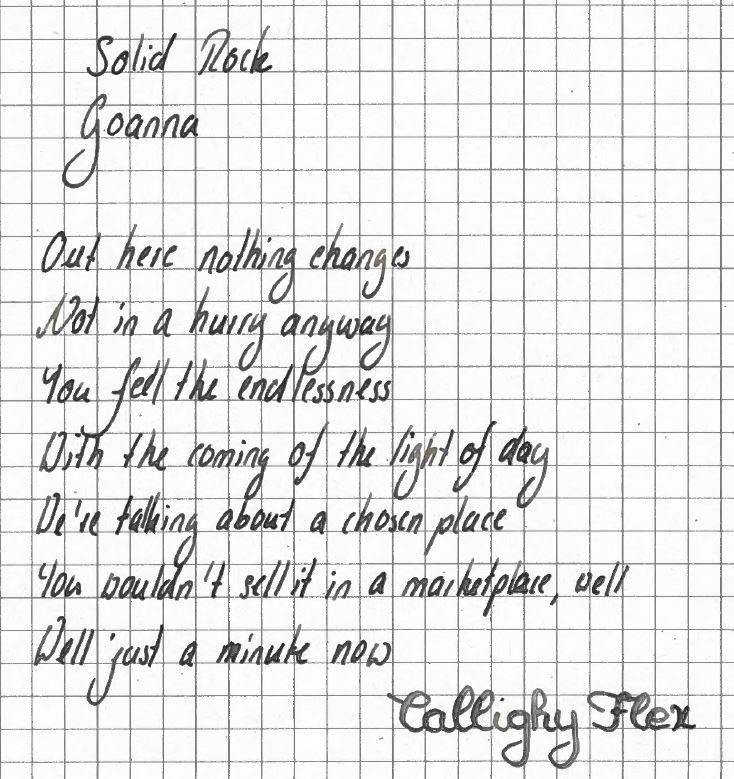 Solid Rock
Goanna
Out here nothing changes
Not in a hurry anyway
You feel the endlessness
With the coming of the light of day
We're talking about a chosen place
You wouldn't sell it in a marketplace, well
Well just a minute now
Callighy Flex